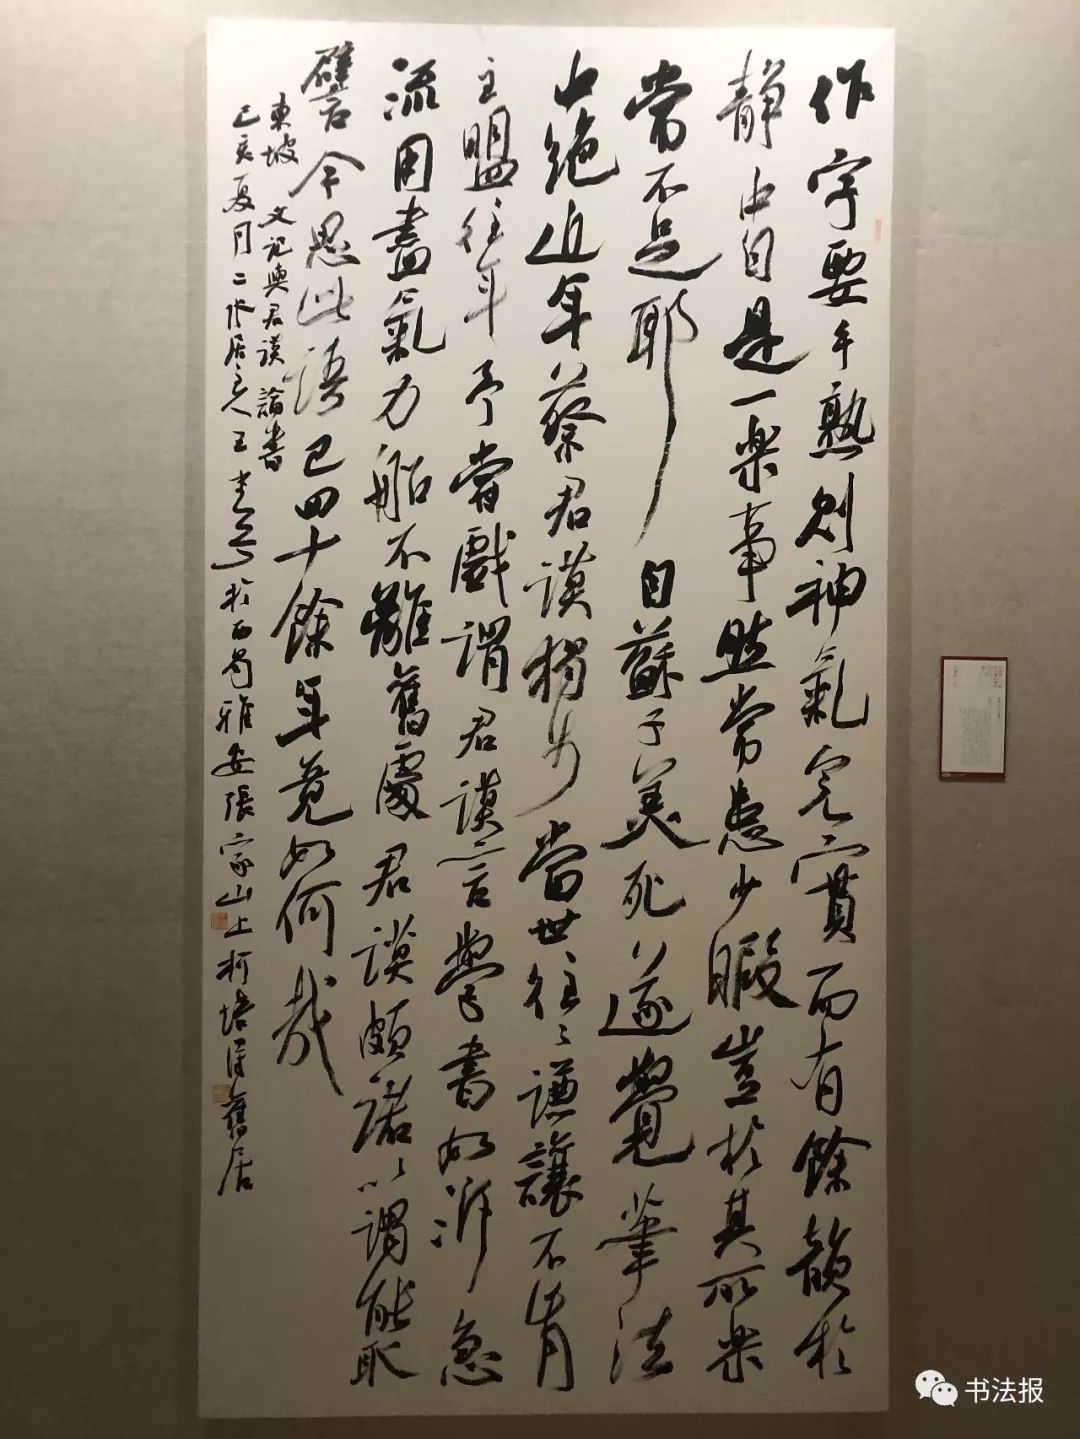 作字要手熟则神氣完實而有餘韻於
静中自是一樂事然常患少暇豈於其所樂
常不足耶自蘇子美死遂覺筆法
中絶近年蔡君謨獨步當世往々謙讓不肯
主盟往年予嘗戲謂君謨言學書如泝急
流用盡氣力船不離舊處君謨頗諾以謂能取
譬今思此語已四十餘年竟如何哉
東坡文記與君謨論書
己亥夏月二 居主人王 於西蜀雅安張家山上柯培 舊居
书法报